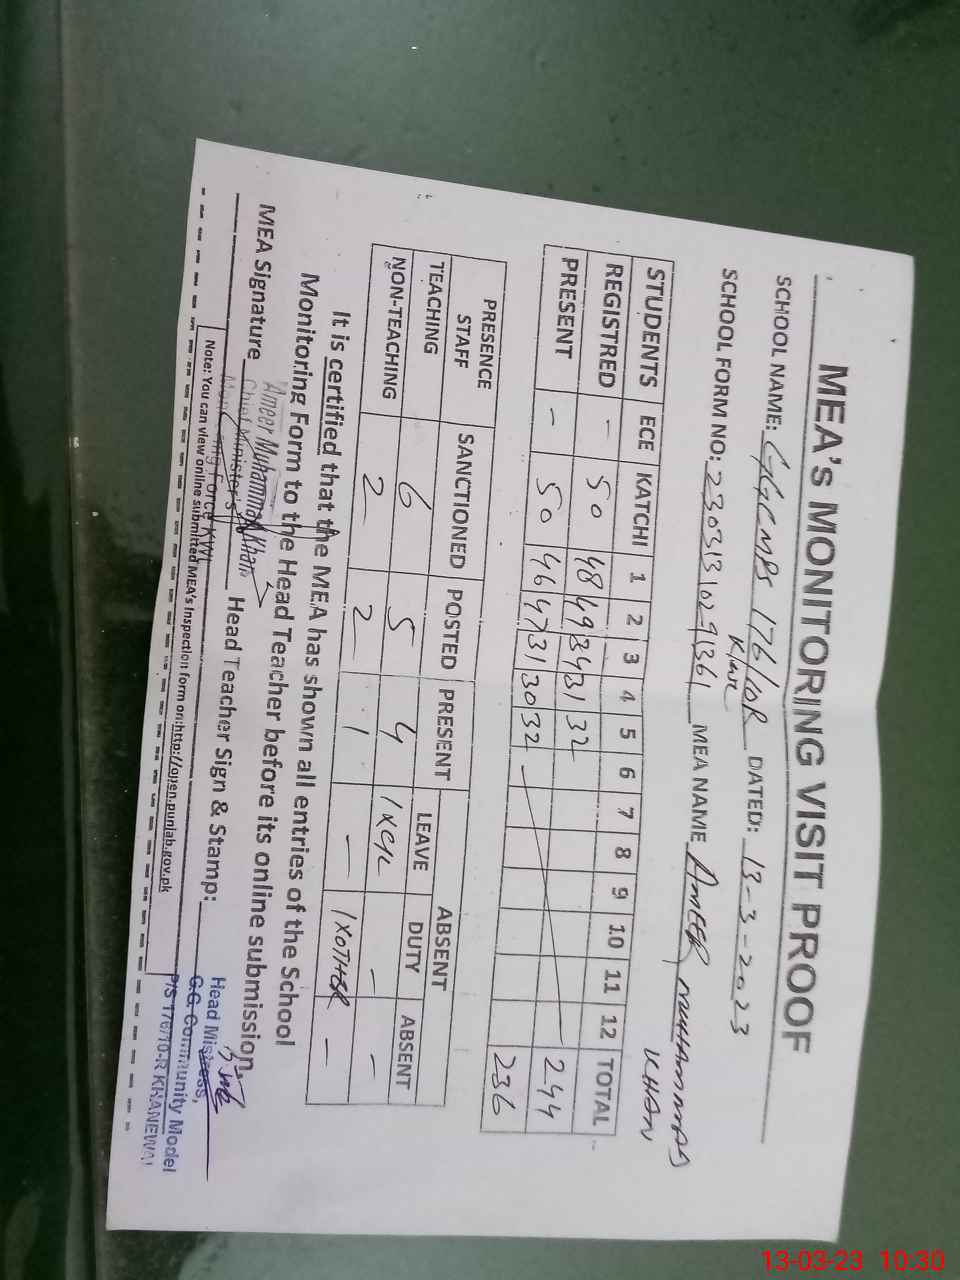 MEA'S MONITORING VISIT PROOF
SCHOOL NAME: GGCMPS 176/10R DATED: 13-3-2023
SCHOOL FORM NO: 2303131029361 MEA NAME AMEER MUHAMMAD KHAN
STUDENTS ECE KATCHI 1 2 3 4 5 6 7 8 9 10 11 12 TOTAL
REGISTRED - 50 48 49 34 31 32 244
PRESENT - 50 46 47 31 30 32 236
PRESENCE STAFF SANCTIONED POSTED PRESENT ABSENT
LEAVE DUTY ABSENT
TEACHING 6 5 4 1XC/L - -
NON-TEACHING 2 2 1 - 1XOTHER -
It is certified that the MEA has shown all entries of the School
Monitoring Form to the Head Teacher before its online submission.
MEA Signature Head Teacher Sign & Stamp:
Ameer Muhammad Khan
Chief Minister's
Monitoring Force KWL
Head Mistress,
G.G. Community Model
P/S 176/10-R KHANEWAL
Note: You can view online submitted MEA's Inspection form on:http://open.punjab.gov.pk
13-03-23 10:30